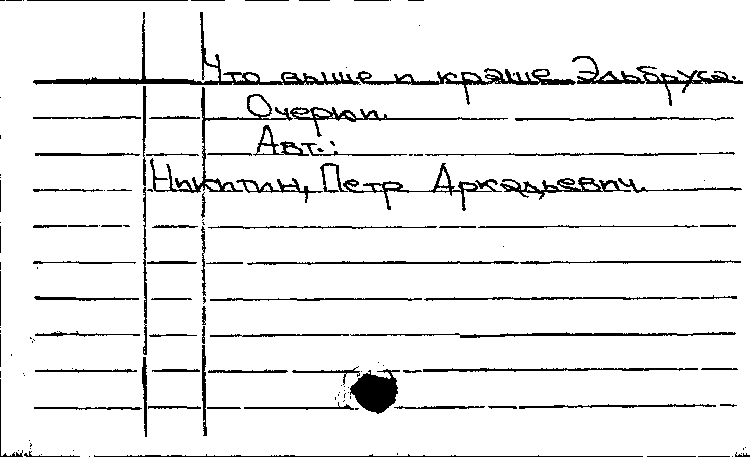 Что выше и краше Эльбруса.
Очерки.
Авт.:
Никитин, Петр Аркадьевич.